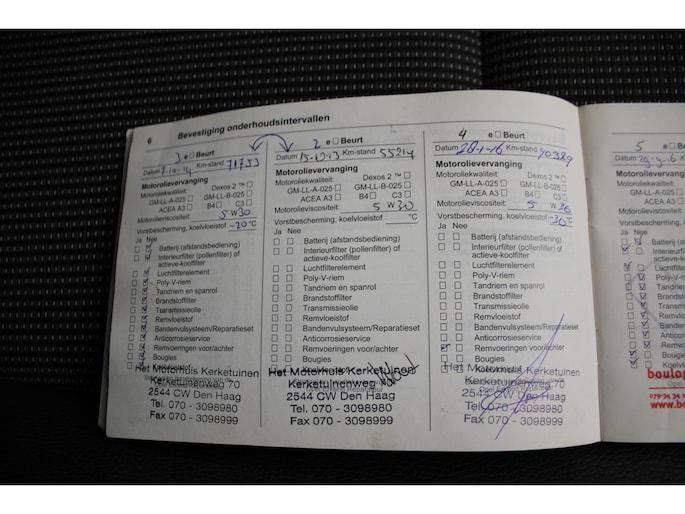 6 Bevestiging onderhoudsintervallen
3 e Beurt
Datum Km-stand 71753
Motorolievervanging
Motoroliekwaliteit: Dexos 2 ™
GM-LL-A-025 GM-LL-B-025
ACEA A3 B4 C3
Motorolieviscositeit: 5 W30
Vorstbescherming, koelvloeistof -20 °C
Ja Nee
Batterij (afstandsbediening)
Interieurfilter (pollenfilter) of
actieve-koolfilter
Luchtfilterelement
Poly-V-riem
Tandriem en spanrol
Brandstoffilter
Transmissieolie
Remvloeistof
Bandenvulsysteem/Reparatieset
Anticorrosieservice
Remvoeringen voor/achter
Bougies
Het Motorhuis Kerketuinen
Kerketuinenweg 70
2544 CW Den Haag
Tel. 070 - 3098980
Fax 070 - 3098999
2 e Beurt
Datum 15-12-13 Km-stand 55214
Motorolievervanging
Motoroliekwaliteit: Dexos 2 ™
GM-LL-A-025 GM-LL-B-025
ACEA A3 B4 C3
Motorolieviscositeit: 5 W30
Vorstbescherming, koelvloeistof °C
Ja Nee
Batterij (afstandsbediening)
Interieurfilter (pollenfilter) of
actieve-koolfilter
Luchtfilterelement
Poly-V-riem
Tandriem en spanrol
Brandstoffilter
Transmissieolie
Remvloeistof
Bandenvulsysteem/Reparatieset
Anticorrosieservice
Remvoeringen voor/achter
Bougies
Het Motorhuis Kerketuinen
Kerketuinenweg 70
2544 CW Den Haag
Tel. 070 - 3098980
Fax 070 - 3098999
4 e Beurt
Datum Km-stand 90389
Motorolievervanging
Motoroliekwaliteit: Dexos 2 ™
GM-LL-A-025 GM-LL-B-025
ACEA A3 B4 C3
Motorolieviscositeit: 5 W 30
Vorstbescherming, koelvloeistof °C
Ja Nee
Batterij (afstandsbediening)
Interieurfilter (pollenfilter) of
actieve-koolfilter
Luchtfilterelement
Poly-V-riem
Tandriem en spanrol
Brandstoffilter
Transmissieolie
Remvloeistof
Bandenvulsysteem/Reparatieset
Anticorrosieservice
Remvoeringen voor/achter
Bougies
Het Motorhuis Kerketuinen
Kerketuinenweg 70
2544 CW Den Haag
Tel. 070 - 3098980
Fax 070 - 3098999
5 e
Datum
Motorolievervanging
Motoroliekwaliteit:
GM-LL-A-025
ACEA A3
Motorolieviscositeit:
Vorstbescherming,
Ja Nee
Batterij
Interieurfilter
actieve-
Luchtfilter
Poly-V-
Tandriem
Brandst
Transm
Remvl
Bande
Antico
Remv
Boug
Koelv